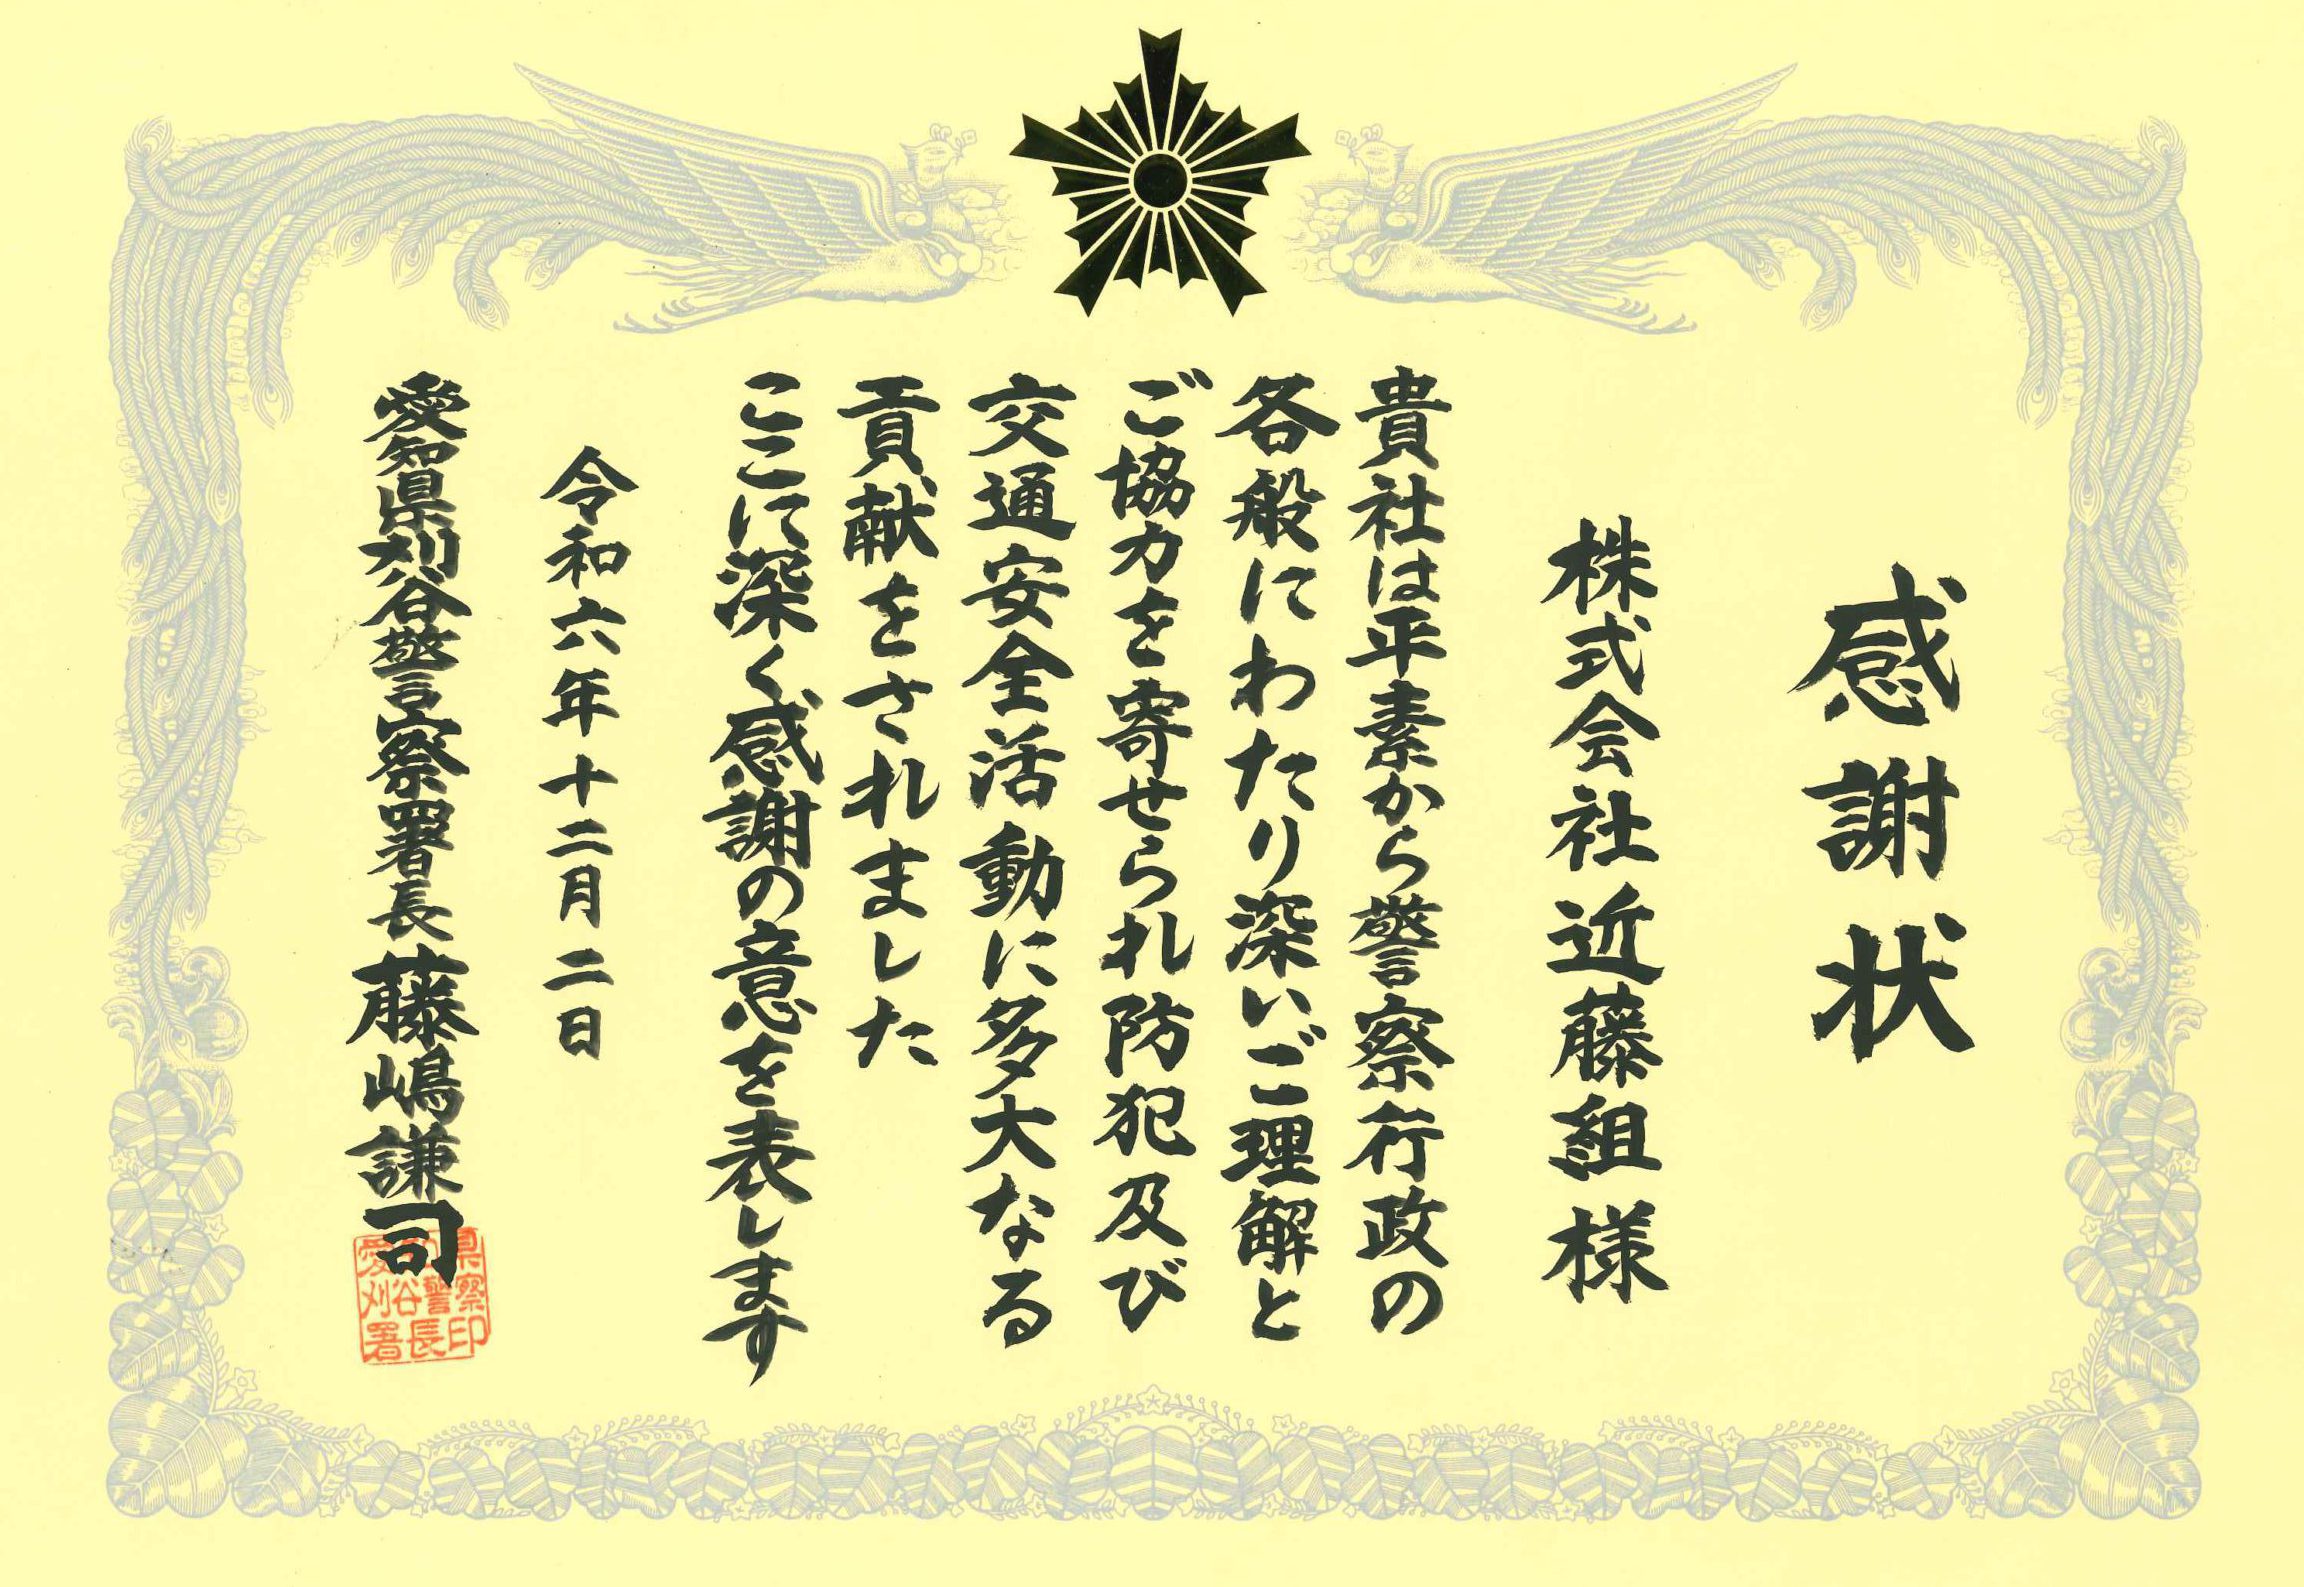 感謝状
株式会社近藤組様
貴社は平素から警察行政の
各般にわたり深いご理解と
ご協力を寄せられ防犯及び
交通安全活動に多大なる
貢献をされました
ここに深く感謝の意を表します
令和六年十二月二日
愛知県刈谷警察署長藤嶋謙司
愛知県
刈谷警察
署長印